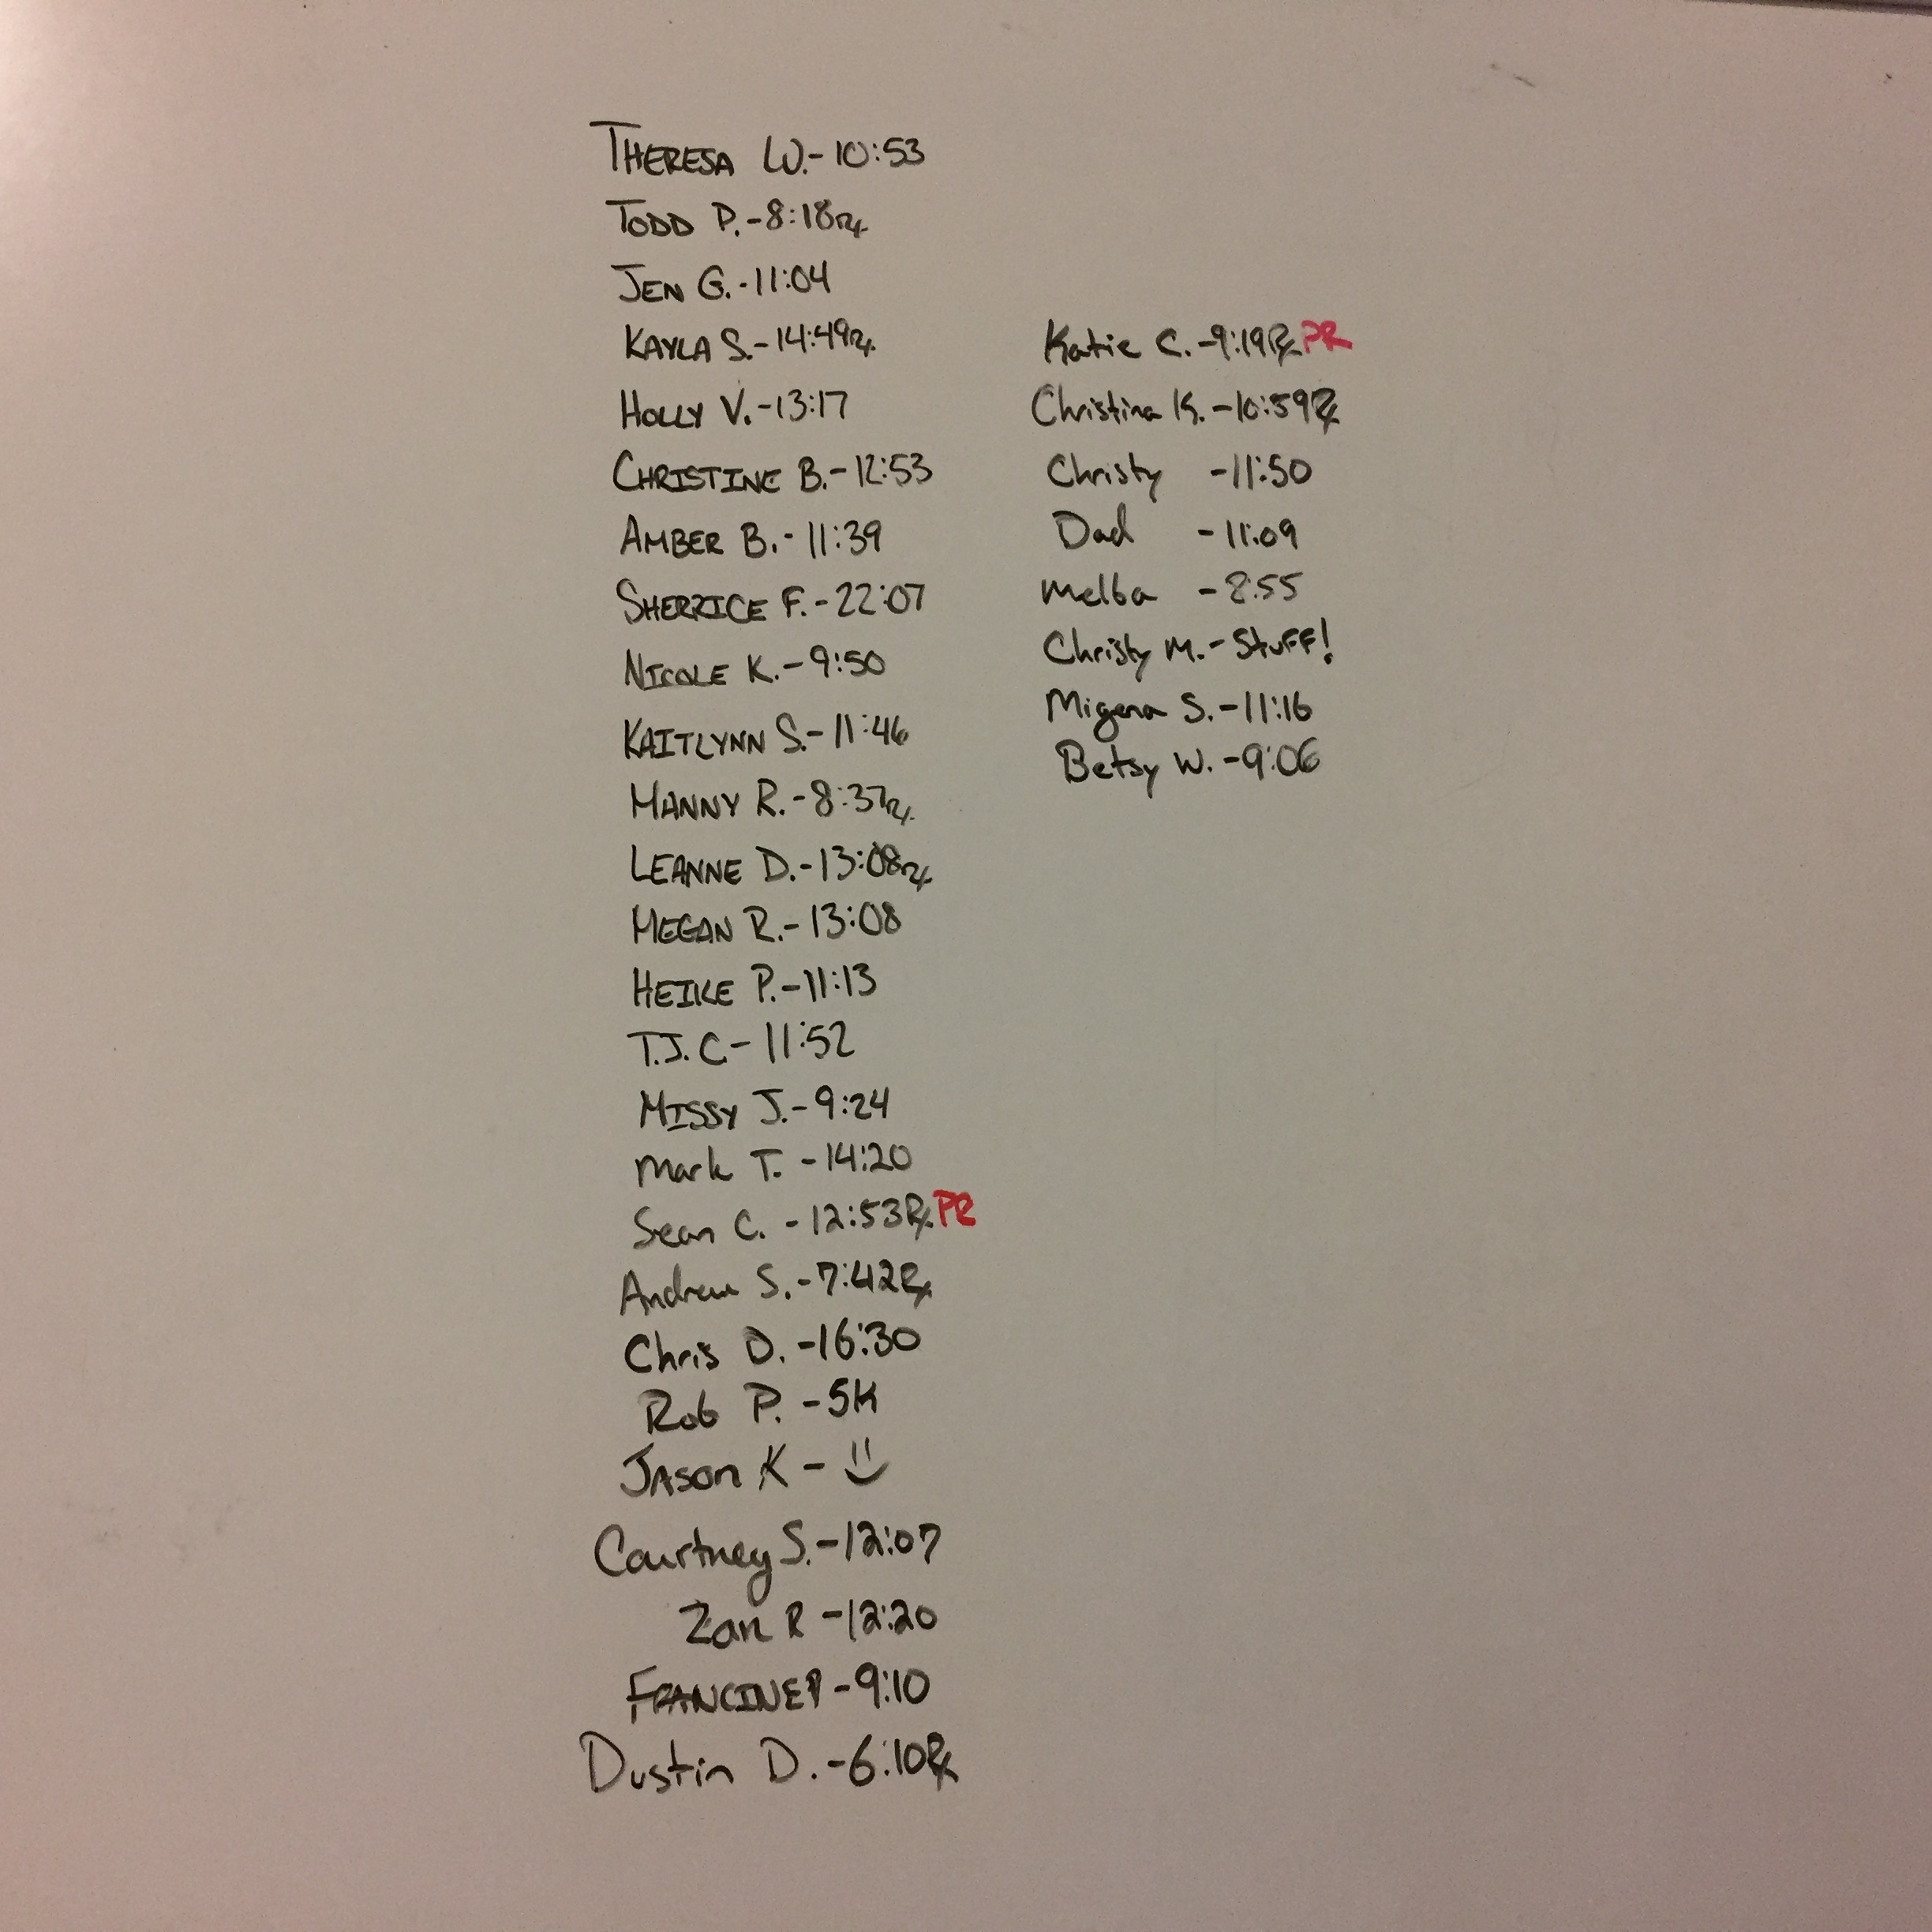 THERESA W.-10:53
TODD P.-8:18Rx
JEN G.-11:04
KAYLA S.-14:49Rx
HOLLY V.-13:17
CHRISTINE B.-12:53
AMBER B.-11:39
SHERRICE F.-22:07
NICOLE K.-9:50
KAITLYNN S.-11:46
MANNY R.-8:37Rx
LEANNE D.-13:08Rx
MEGAN R.-13:08
HEIKE P.-11:13
T.J. C-11:52
MISSY J.-9:24
Mark T.-14:20
Sean C.-12:53Rx PR
Andrew S.-7:42Rx
Chris D.-16:30
Rob P.-5K
JASON K-
Courtney S.-12:07
Zan R-12:20
FRANCINE P-9:10
Dustin D.-6:10Rx
Katie C.-9:19Rx PR
Christina K.-10:59Rx
Christy -11:50
Dad -11:09
Melba -8:55
Christy M.-Stuff!
Migena S.-11:16
Betsy W.-9:06